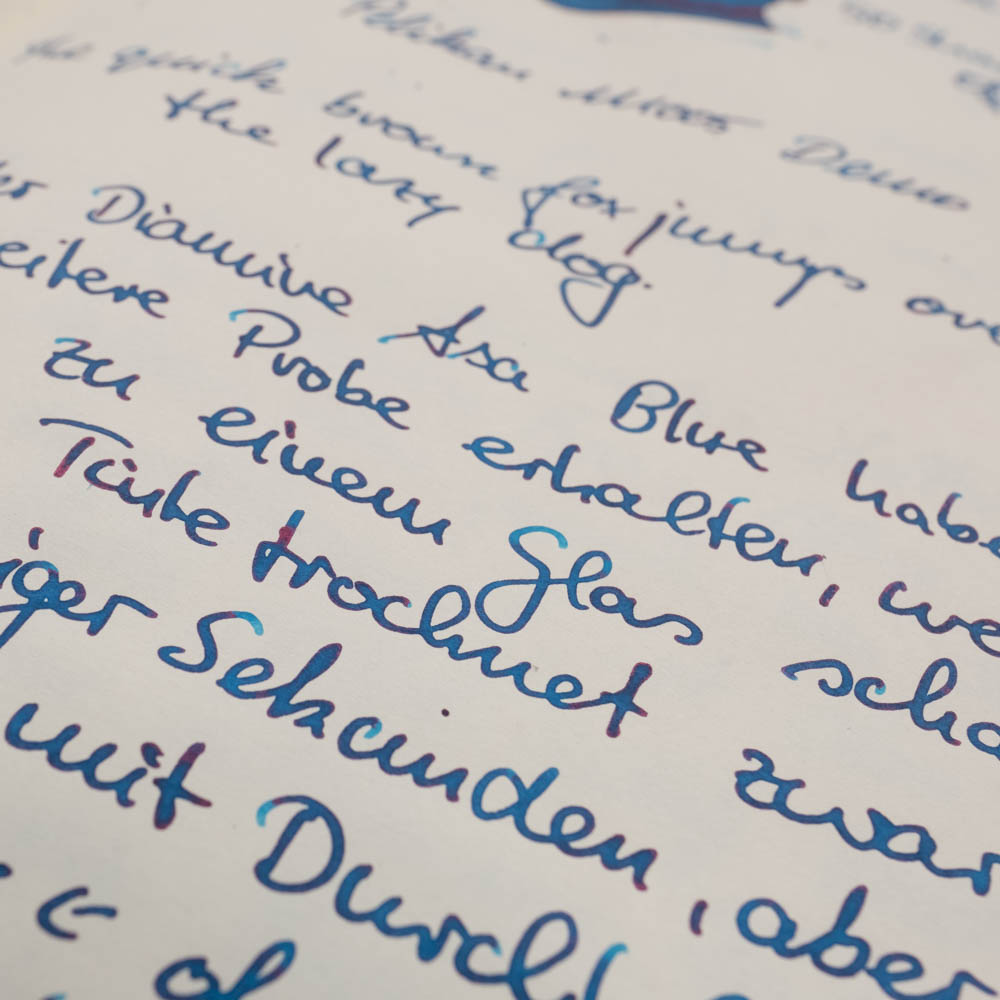 Pelikan M1005 Demo
quick brown fox jumps over
the lazy dog.
Diamine Asa Blue habe
weitere Probe erhalten, we
zu einem Glas scho
Tinte trocknet zwar
iger Sekunden, aber
mit Durchl